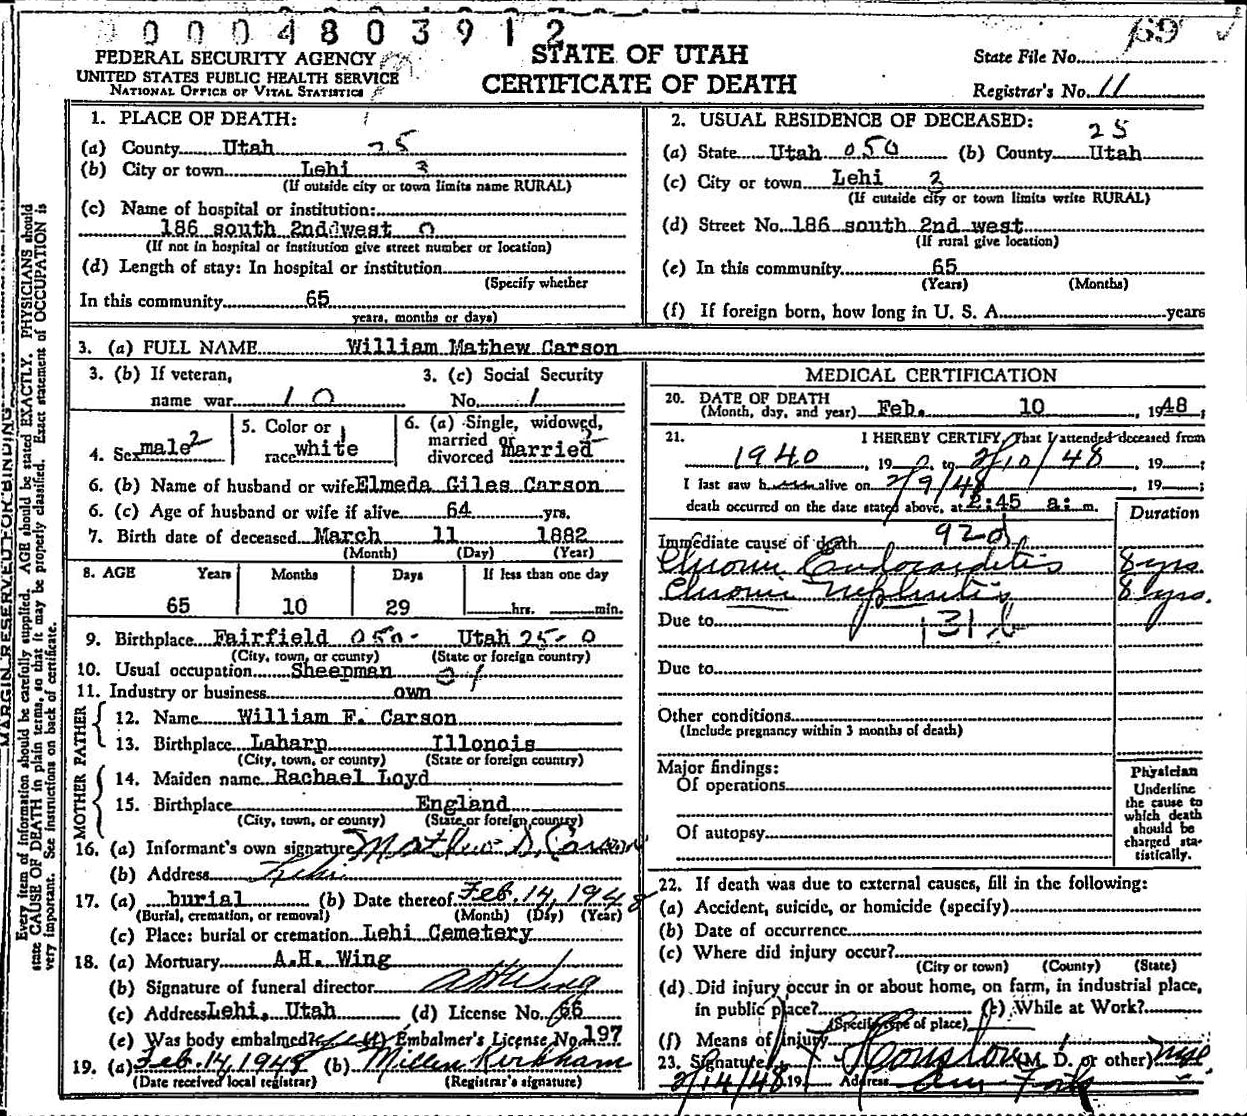 0 0 0 4 8 0 3 9 1 2
FEDERAL SECURITY AGENCY
UNITED STATES PUBLIC HEALTH SERVICE
NATIONAL OFFICE OF VITAL STATISTICS
STATE OF UTAH
CERTIFICATE OF DEATH
State File No. 69
Registrar's No. 11
MARGIN RESERVED FOR BINDING
Every item of information should be carefully supplied. AGE should be stated EXACTLY. PHYSICIANS should
state CAUSE OF DEATH in plain terms, so that it may be properly classified. Exact statement of OCCUPATION is
very important. See instructions on back of certificate.
1. PLACE OF DEATH:
(a) County Utah 25
(b) City or town Lehi 3
(If outside city or town limits name RURAL)
(c) Name of hospital or institution:
186 south 2nd west 0
(If not in hospital or institution give street number or location)
(d) Length of stay: In hospital or institution
(Specify whether
In this community 65
years, months or days)
2. USUAL RESIDENCE OF DECEASED:
25
(a) State Utah 050 (b) County Utah
(c) City or town Lehi 3
(If outside city or town limits write RURAL)
(d) Street No. 186 south 2nd west
(If rural give location)
(e) In this community 65
(Years) (Months)
(f) If foreign born, how long in U. S. A. years
3. (a) FULL NAME William Mathew Carson
3. (b) If veteran,
name war 1 0
3. (c) Social Security
No. 1
4. Sex male 2
5. Color or
race white 1
6. (a) Single, widowed,
married or
divorced married
6. (b) Name of husband or wife Elmeda Giles Carson
6. (c) Age of husband or wife if alive 64 yrs.
7. Birth date of deceased March 11 1882
(Month) (Day) (Year)
8. AGE Years Months Days If less than one day
65 10 29 hrs. min.
9. Birthplace Fairfield 050- Utah 25-0
(City, town, or county) (State or foreign country)
10. Usual occupation Sheepman
11. Industry or business own
FATHER
12. Name William F. Carson
13. Birthplace Laharp Illonois
(City, town, or county) (State or foreign country)
MOTHER
14. Maiden name Rachael Loyd
15. Birthplace England
(City, town, or county) (State or foreign country)
16. (a) Informant's own signature Mathew D. Carson
(b) Address Lehi
17. (a) burial (b) Date thereof Feb. 14, 1948
(Burial, cremation, or removal) (Month) (Day) (Year)
(c) Place: burial or cremation Lehi Cemetery
18. (a) Mortuary A.H. Wing
(b) Signature of funeral director AH Wing
(c) Address Lehi, Utah (d) License No. 66
(e) Was body embalmed? yes (f) Embalmer's License No. 197
19. (a) Feb. 14, 1948 (b) Millen Kirkham
(Date received local registrar) (Registrar's signature)
MEDICAL CERTIFICATION
20. DATE OF DEATH
(Month, day, and year) Feb. 10, 1948;
21. I HEREBY CERTIFY, That I attended deceased from
1940, 19 , to 2/10/48, 19 ;
I last saw h alive on 2/9/48, 19 ;
death occurred on the date stated above, at 2:45 a. m.
Duration
Immediate cause of death 92d
Chronic Endocarditis 8 yrs.
Chronic Nephritis 8 yrs.
Due to 131 b
Due to
Other conditions
(Include pregnancy within 3 months of death)
Major findings:
Of operations
Of autopsy
Physician
Underline
the cause to
which death
should be
charged sta-
tistically.
22. If death was due to external causes, fill in the following:
(a) Accident, suicide, or homicide (specify)
(b) Date of occurrence
(c) Where did injury occur?
(City or town) (County) (State)
(d) Did injury occur in or about home, on farm, in industrial place,
in public place? (e) While at Work?
(Specify type of place)
(f) Means of injury
23. Signature Houston (M. D. or other)
2/14/48 19 Address Am Fork